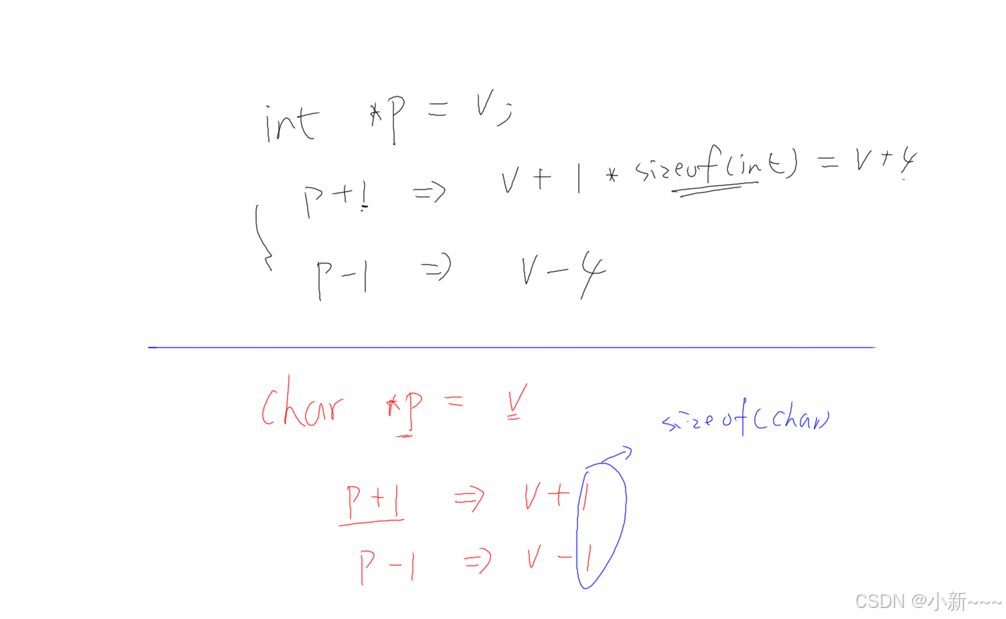 int *p = v;
p+1 => v + 1 * sizeof(int) = v+4
p-1 => v-4
char *p = v
sizeof(char)
p+1 => v+1
p-1 => v-1
CSDN @小新~~~